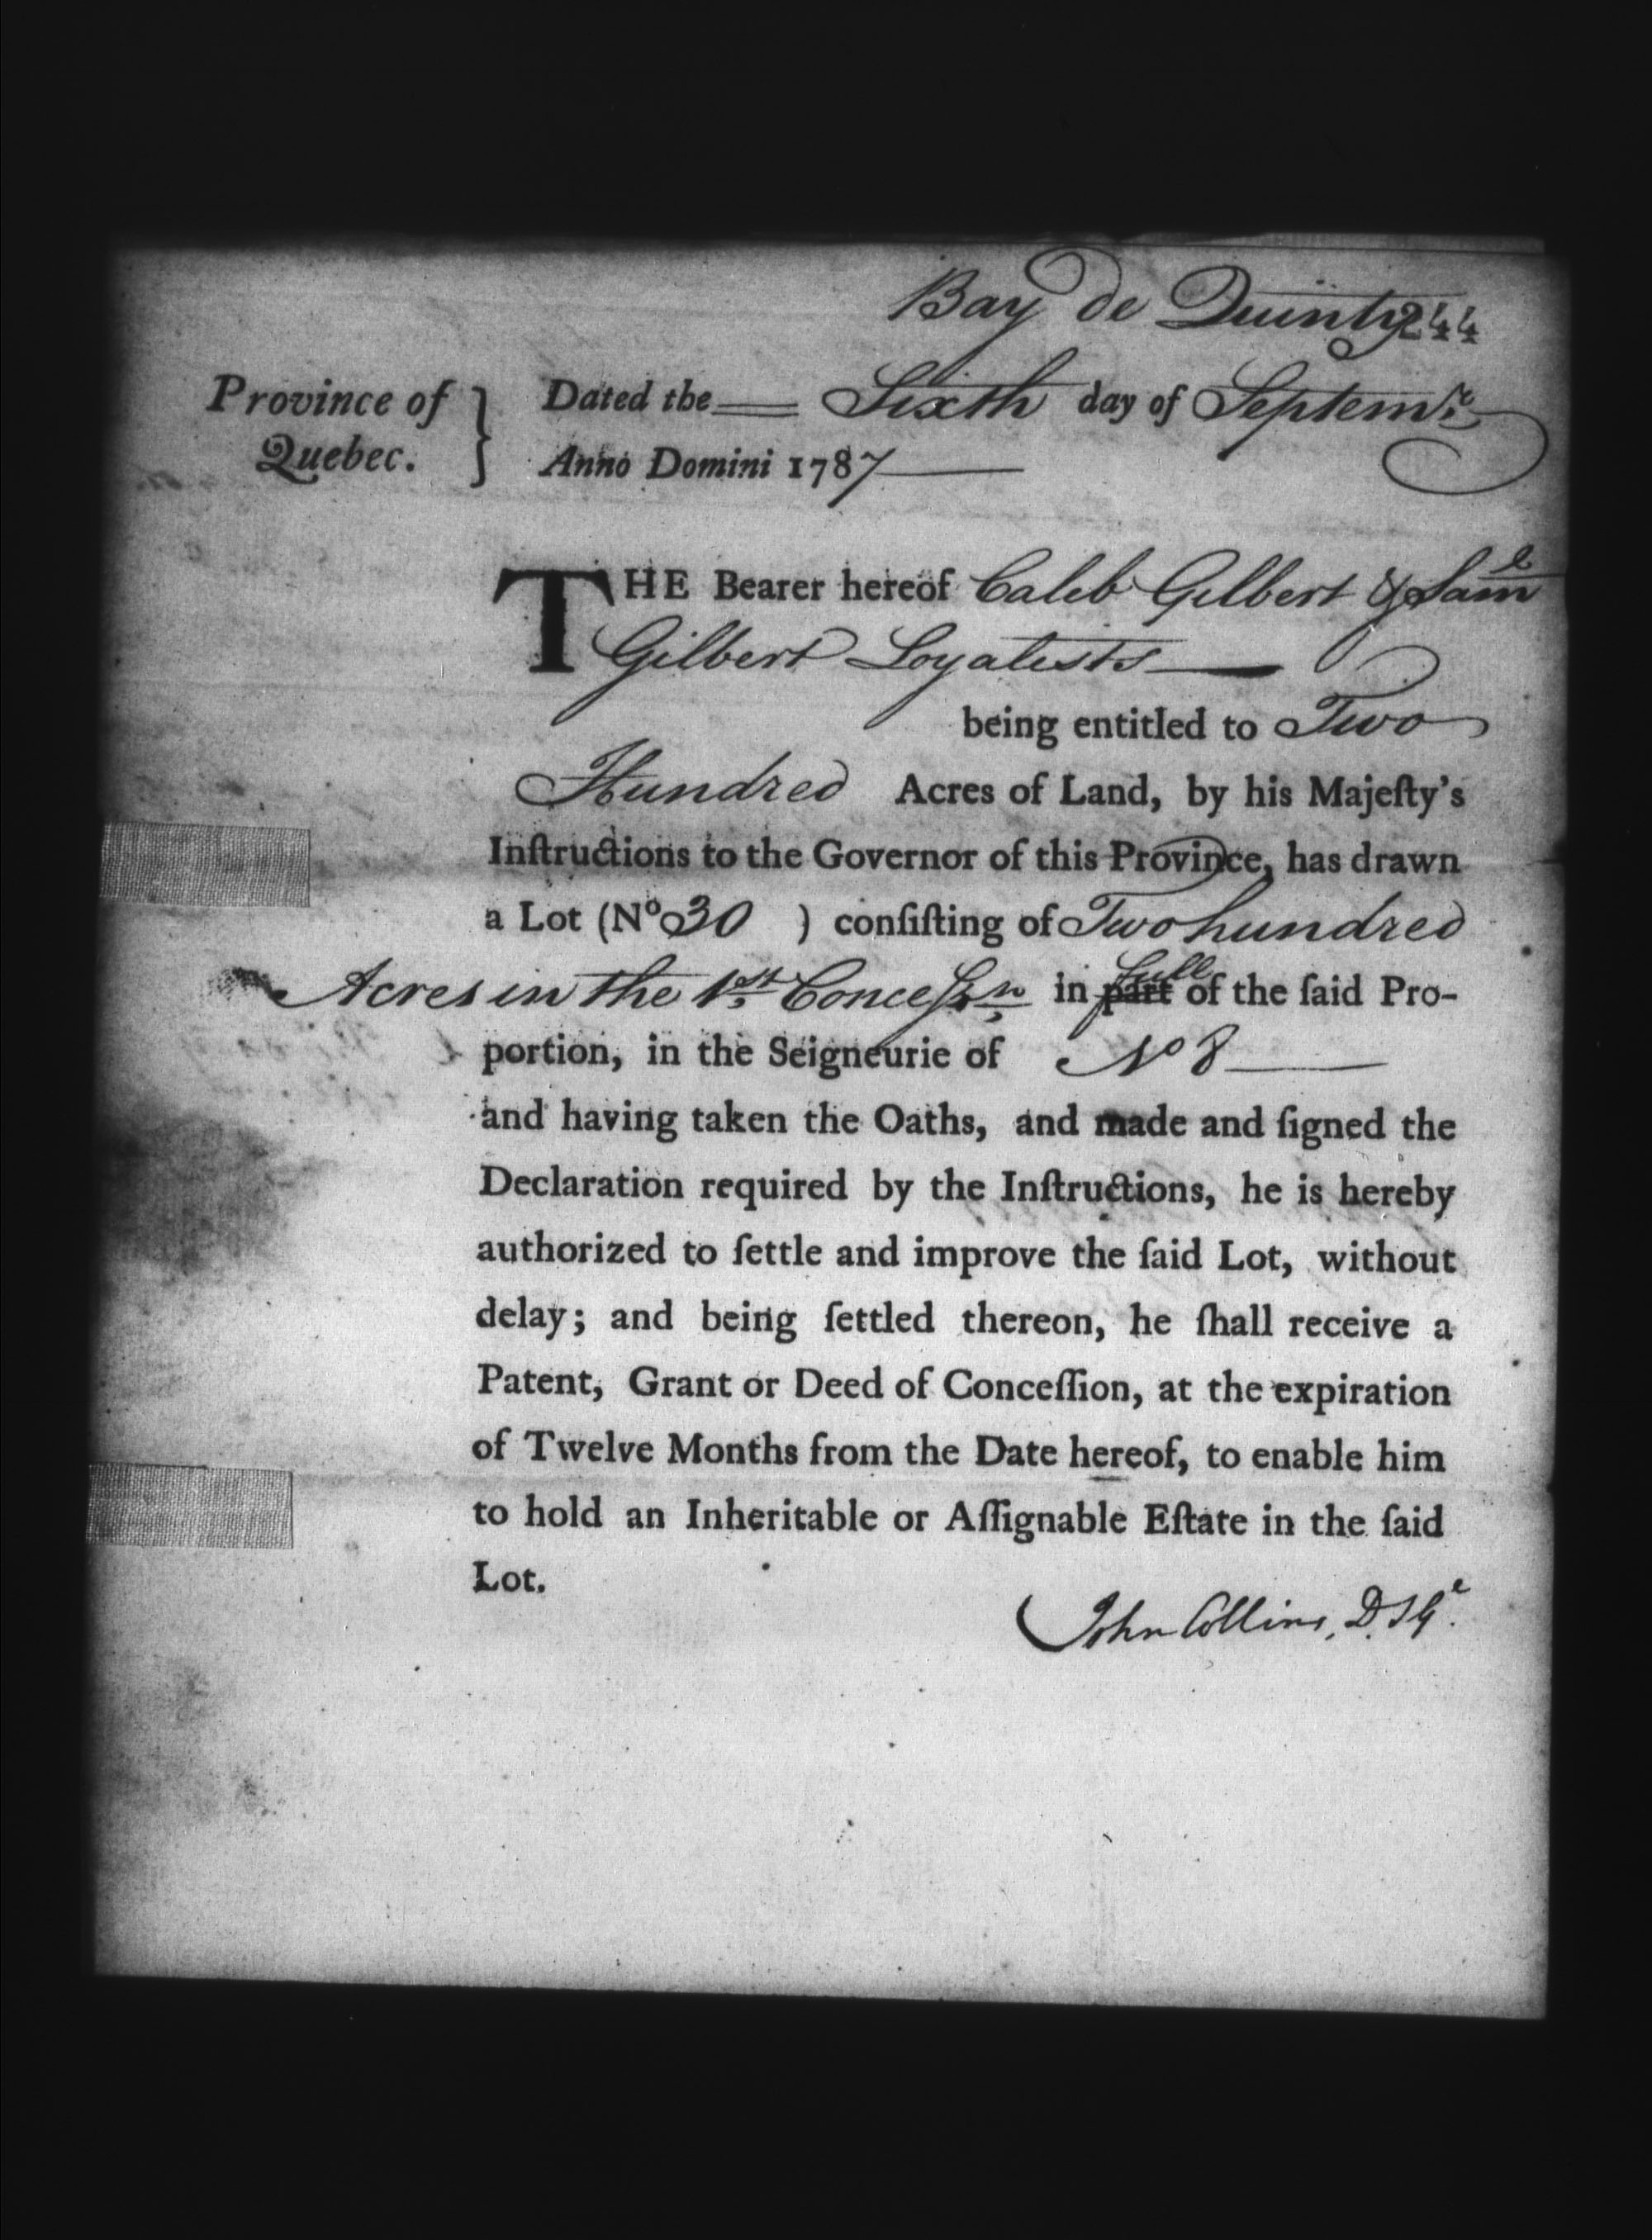 Bay de Quinty 244
Province of Quebec. } Dated the Sixth day of Septemr
Anno Domini 1787
THE Bearer hereof Caleb Gilbert & Saml
Gilbert Loyalists
being entitled to Two
Hundred Acres of Land, by his Majeſty's
Inſtructions to the Governor of this Province, has drawn
a Lot (No 30 ) conſiſting of Two hundred
Acres in the 1st Conceſsn in part full of the ſaid Pro-
portion, in the Seigneurie of No 8
and having taken the Oaths, and made and ſigned the
Declaration required by the Inſtructions, he is hereby
authorized to ſettle and improve the ſaid Lot, without
delay; and being ſettled thereon, he ſhall receive a
Patent, Grant or Deed of Conceſſion, at the expiration
of Twelve Months from the Date hereof, to enable him
to hold an Inheritable or Aſſignable Eſtate in the ſaid
Lot.
John Collins, D.S.G.